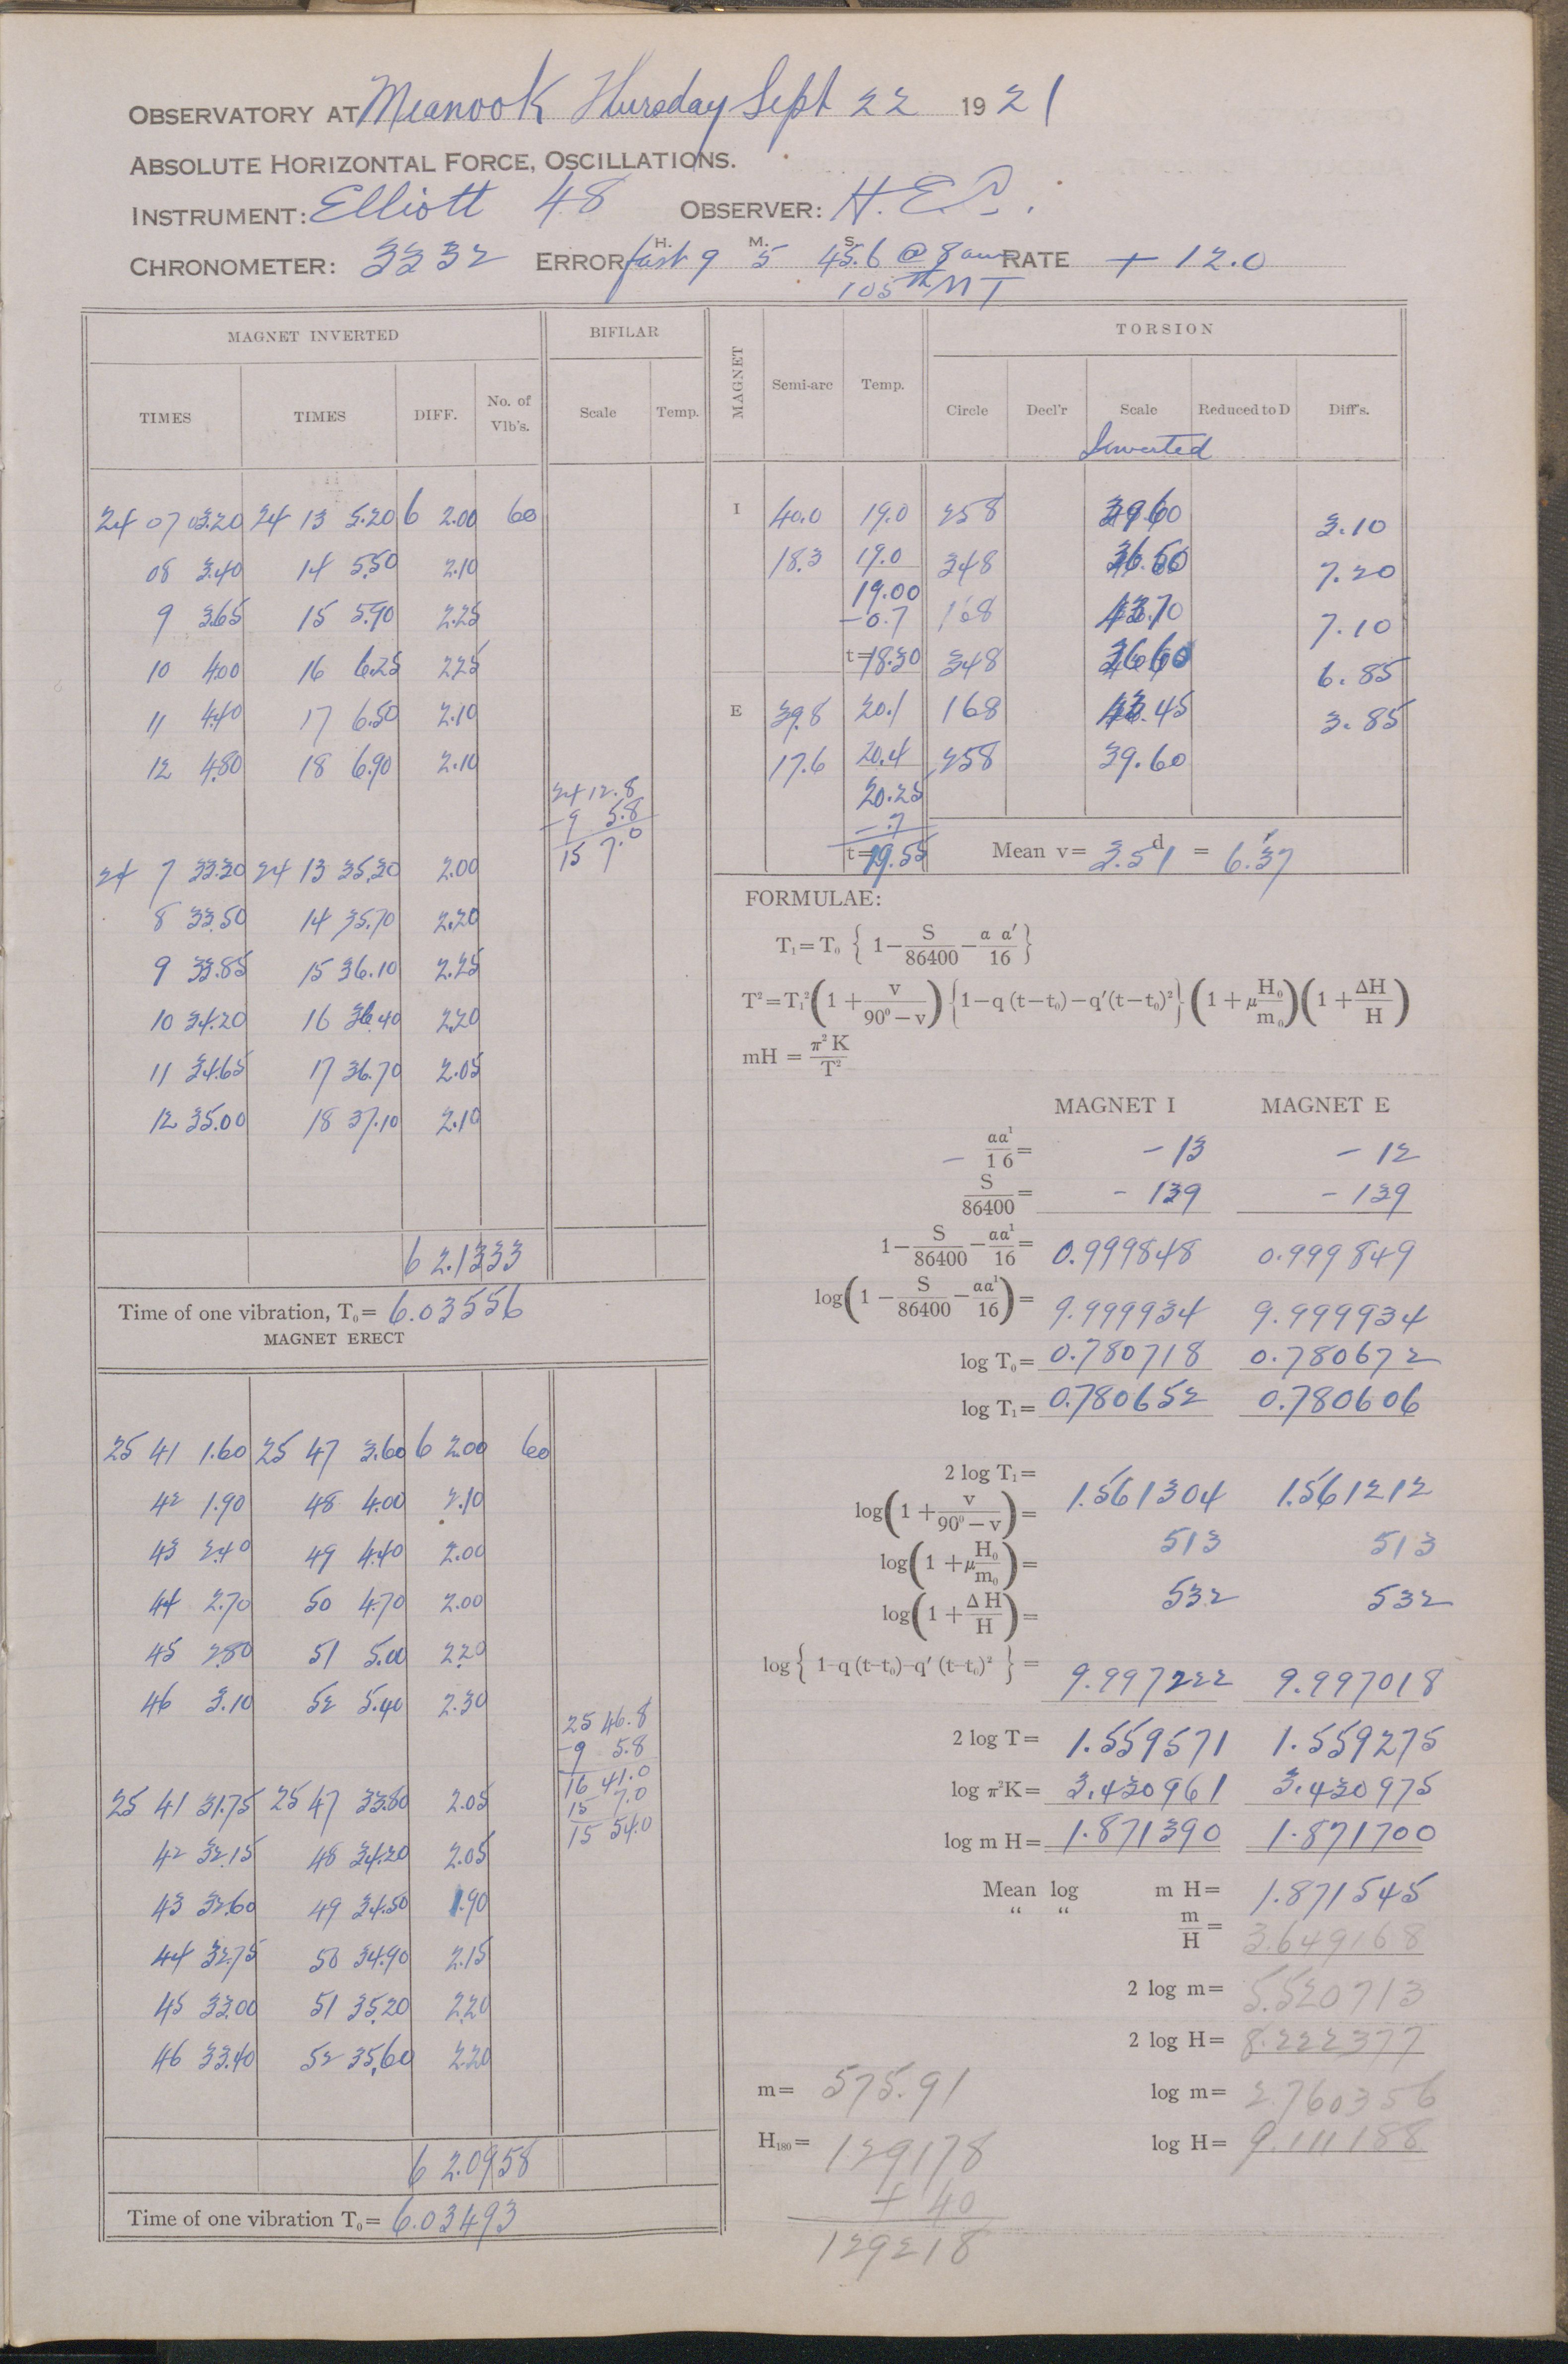 OBSERVATORY AT Meanook Thursday Sept 22 1921
ABSOLUTE HORIZONTAL FORCE, OSCILLATIONS.
INSTRUMENT: Elliott 48 OBSERVER: H.E.
CHRONOMETER: 3332 ERROR fast H. 9 M. 5 S. 45.6 @ 8 am RATE + 12.0
105th M T
MAGNET INVERTED
TIMES TIMES DIFF. No. of Vib's.
BIFILAR
Scale Temp.
24 07 03.20 24 13 5.20 6 2.00 60
08 3.40 14 5.50 2.10
9 3.65 15 5.90 2.25
10 4.00 16 6.25 2.25
11 4.40 17 6.50 2.10
12 4.80 18 6.90 2.10
24 12.8
-9 5.8
15 7.0
24 7 33.30 24 13 35.30 2.00
8 33.50 14 35.70 2.20
9 33.85 15 36.10 2.25
10 34.20 16 36.40 2.20
11 34.65 17 36.70 2.05
12 35.00 18 37.10 2.10
6 2.1333
Time of one vibration, T₀= 6.03556
MAGNET ERECT
25 41 1.60 25 47 3.60 6 2.00 60
42 1.90 48 4.00 2.10
43 2.40 49 4.40 2.00
44 2.70 50 4.70 2.00
45 2.80 51 5.00 2.20
46 3.10 52 5.40 2.30
25 46.8
-9 5.8
16 41.0
15 7.0
15 54.0
25 41 31.75 25 47 33.80 2.05
42 32.15 48 34.20 2.05
43 32.60 49 34.50 1.90
44 32.75 50 34.90 2.15
45 33.00 51 35.20 2.20
46 33.40 52 35.60 2.20
6 2.0958
Time of one vibration T₀= 6.03493
MAGNET Semi-arc Temp.
TORSION
Circle Decl'r Scale Reduced to D Diff's.
Inverted
I 40.0 19.0 258 39.60 3.10
18.3 19.0 348 36.50 7.20
19.00
-0.7 168 43.70 7.10
t=18.30 348 36.60 6.85
E 39.8 20.1 168 43.45 3.85
17.6 20.4 258 39.60
20.25
-.7
t=19.55 Mean v= 3.51 d = 6.'37
FORMULAE:
T₁=T₀ { 1- S/86400 - a a′/16 }
T²=T₁²(1 + v/90⁰-v){1-q (t-t₀)-q′(t-t₀)²}(1+μ H₀/m₀)(1+ΔH/H)
mH = π² K/T²
MAGNET I MAGNET E
- aa¹/16= -13 -12
S/86400= -139 -139
1- S/86400 - aa¹/16= 0.999848 0.999849
log(1 - S/86400 - aa¹/16)= 9.999934 9.999934
log T₀= 0.780718 0.780672
log T₁= 0.780652 0.780606
2 log T₁= 1.561304 1.561212
log(1+ v/90⁰-v)= 513 513
log(1 +μ H₀/m₀)= 532 532
log(1+ Δ H/H)=
log{ 1-q (t-t₀)-q′ (t-t₀)² }= 9.997222 9.997018
2 log T= 1.559571 1.559275
log π²K= 3.430961 3.430975
log m H= 1.871390 1.871700
Mean log m H= 1.871545
“ “ m/H= 3.649168
2 log m= 5.520713
2 log H= 8.222377
m= 575.91 log m= 2.760356
H₁₈₀= 129178 log H= 9.111188
+ 40
129218